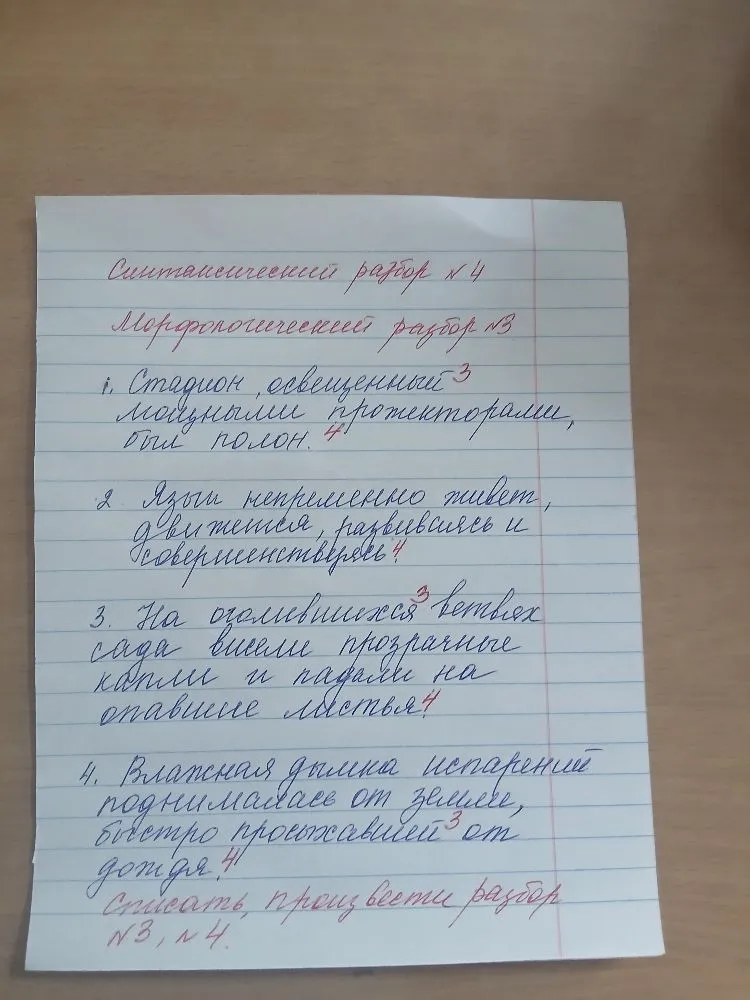 Синтаксический разбор №4
Морфологический разбор №3
1. Стадион, освещенный³
мощными прожекторами,
был полон.⁴
2 Язык непременно живет,
движется, развиваясь и
совершенствуясь⁴.
3. На оголившихся³ ветвях
сада висели прозрачные
капли и падали на
опавшие листья⁴.
4. Влажная дымка испарений
поднималась от земли,
быстро просыхавшей³ от
дождя.⁴
Списать, произвести разбор
№3, №4.